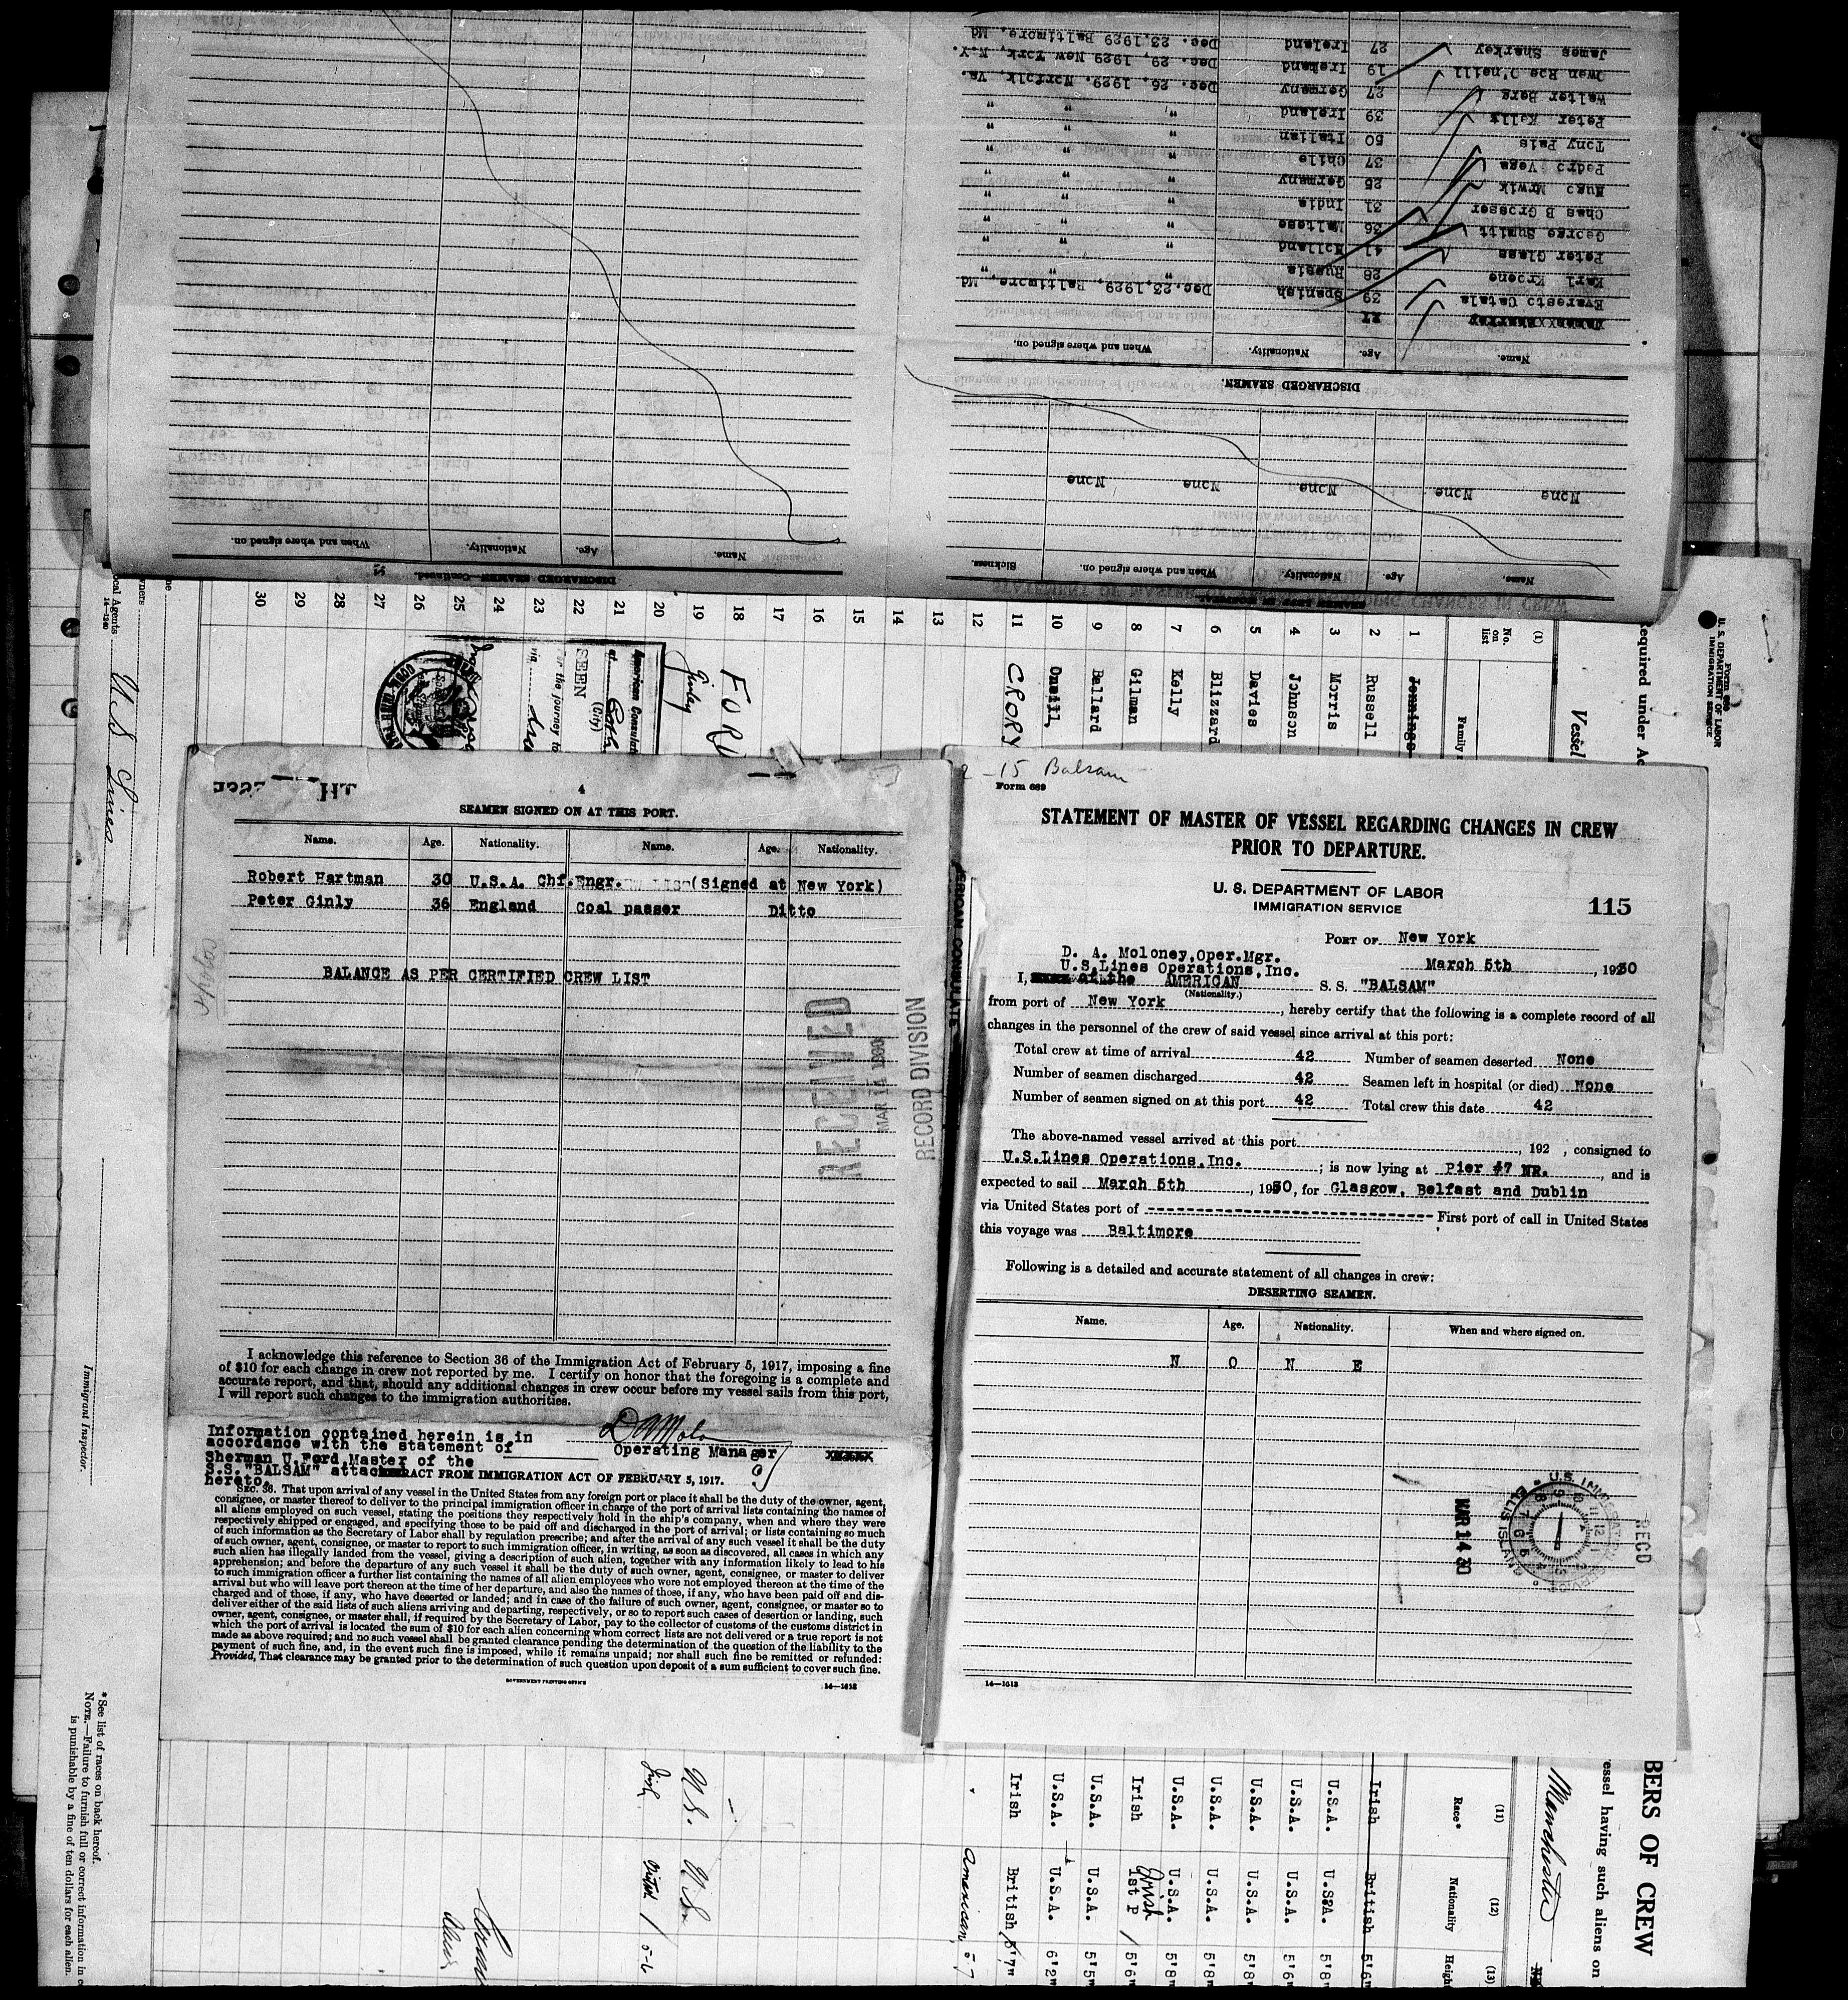 James Sharkey 27 Ireland Dec. 23, 1929 Baltimore, Md
Owen Roe O'neill 19 Ireland Dec. 29, 1929 New York, N.Y.
Walter Berg 27 Germany Dec. 26, 1929. Norfolk, Va.
Peter Kelly 39 Ireland " " "
Tony Pais 50 Italian " " "
Pedro Vega 37 Chile " " "
Hugo Mrwik 25 Germany " " "
Chas B Grosser 31 India " " "
George Summitt 36 Maltese " " "
Peter Glass 41 Holland " " "
Karl Kroene 28 Russia " " "
Everesto Catala 39 Spanish Dec. 23, 1929, Baltimore, Md
Name. Age. Nationality. When and where signed on.
DISCHARGED SEAMEN.
None None None None None
Name. Age. Nationality. When and where signed on. Sickness.
DISCHARGED SEAMEN—Continued.
Name. Age. Nationality. When and where signed on.
30 29 28 27 26 25 24 23 22 21 20 19 18 17 16 15 14 13 12 11 10 9 8 7 6 5 4 3 2 1
(1)
No. on list
Family
Vessel
Required under Ac
Form 689
U. S. DEPARTMENT OF LABOR
IMMIGRATION SERVICE
Jennings
Russell
Morris
Johnson
Davies
Blizzard
Kelly
Gilman
Ballard
Oneill,
CRORY
FORD
Ginley
American Consulate
at
(City)
SEEN
For the journey to
via
Local Agents U S Lines
14—1240
4
SEAMEN SIGNED ON AT THIS PORT.
Name. Age. Nationality. Name. Age. Nationality.
Robert Hartman 30 U.S.A. Chf.Engr. (Signed at New York)
Peter Ginly 36 England Coal passer Ditto
BALANCE AS PER CERTIFIED CREW LIST
RECEIVED
MAR 14 1930
RECORD DIVISION
I acknowledge this reference to Section 36 of the Immigration Act of February 5, 1917, imposing a fine
of $10 for each change in crew not reported by me. I certify on honor that the foregoing is a complete and
accurate report, and that, should any additional changes in crew occur before my vessel sails from this port,
I will report such changes to the immigration authorities.
Information contained herein is in
accordance with the statement of
Operating Manager
Sherman U.Ford Master of the
S.S."BALSAM" attached
hereto
EXTRACT FROM IMMIGRATION ACT OF FEBRUARY 5, 1917.
SEC. 36. That upon arrival of any vessel in the United States from any foreign port or place it shall be the duty of the owner, agent,
consignee, or master thereof to deliver to the principal immigration officer in charge of the port of arrival lists containing the names of
all aliens employed on such vessel, stating the positions they respectively hold in the ship's company, when and where they were
respectively shipped or engaged, and specifying those to be paid off and discharged in the port of arrival; or lists containing so much
of such information as the Secretary of Labor shall by regulation prescribe; and after the arrival of any such vessel it shall be the duty
of such owner, agent, consignee, or master to report to such immigration officer, in writing, as soon as discovered, all cases in which any
such alien has illegally landed from the vessel, giving a description of such alien, together with any information likely to lead to his
apprehension; and before the departure of any such vessel it shall be the duty of such owner, agent, consignee, or master to deliver
to such immigration officer a further list containing the names of all alien employees who were not employed thereon at the time of the
arrival but who will leave port thereon at the time of her departure, and also the names of those, if any, who have been paid off and dis-
charged and of those, if any, who have deserted or landed; and in case of the failure of such owner, agent, consignee, or master so to
deliver either of the said lists of such aliens arriving and departing, respectively, or so to report such cases of desertion or landing, such
owner, agent, consignee, or master shall, if required by the Secretary of Labor, pay to the collector of customs of the customs district in
which the port of arrival is located the sum of $10 for each alien concerning whom correct lists are not delivered or a true report is not
made as above required; and no such vessel shall be granted clearance pending the determination of the question of the liability to the
payment of such fine, and, in the event such fine is imposed, while it remains unpaid; nor shall such fine be remitted or refunded:
Provided, That clearance may be granted prior to the determination of such question upon deposit of a sum sufficient to cover such fine.
GOVERNMENT PRINTING OFFICE
14—1618
15 Balsam
Form 689
STATEMENT OF MASTER OF VESSEL REGARDING CHANGES IN CREW
PRIOR TO DEPARTURE.
U. S. DEPARTMENT OF LABOR
IMMIGRATION SERVICE
115
PORT OF New York
March 5th, 1930
D. A. Moloney,Oper.Mgr.
U.S.Lines Operations,Inc.
I, of the AMERICAN S. S. "BALSAM"
(Nationality.)
from port of New York, hereby certify that the following is a complete record of all
changes in the personnel of the crew of said vessel since arrival at this port:
Total crew at time of arrival 42 Number of seamen deserted None
Number of seamen discharged 42 Seamen left in hospital (or died) None
Number of seamen signed on at this port 42 Total crew this date 42
The above-named vessel arrived at this port , 192 , consigned to
U.S.Lines Operations,Inc. ; is now lying at Pier #7 NR. , and is
expected to sail March 5th , 1930, for Glasgow, Belfast and Dublin
via United States port of First port of call in United States
this voyage was Baltimore
Following is a detailed and accurate statement of all changes in crew:
DESERTING SEAMEN.
Name. Age. Nationality. When and where signed on.
N O N E
MAR 14 30
U.S. IMMIGRATION SERVICE
ELLIS ISLAND
RECD
14—1618
Immigrant Inspector.
* See list of races on back hereof.
NOTE.—Failure to furnish full or correct information in
is punishable by a fine of ten dollars for each alien.
BERS OF CREW
essel having such aliens on
Manchester
(11) (12) (13)
Race* Nationality Heigh
Irish British 5'6"
U.S.A. U.SPA. 5'8"
U.S.A. U.S.A. 5'6"
U.S.A. U.S.A. 5'8"
U.S.A. U.S.A. 5'8"
U.S.A. U.S.A. 5'8"
Irish Irish 1st P 5'6"
U.S.A. U.S.A. 5'5"
U.S.A. U.S.A. 6'2"
Irish British 5'7"
American 5-7
U.S. U.S.
Irish 5-6